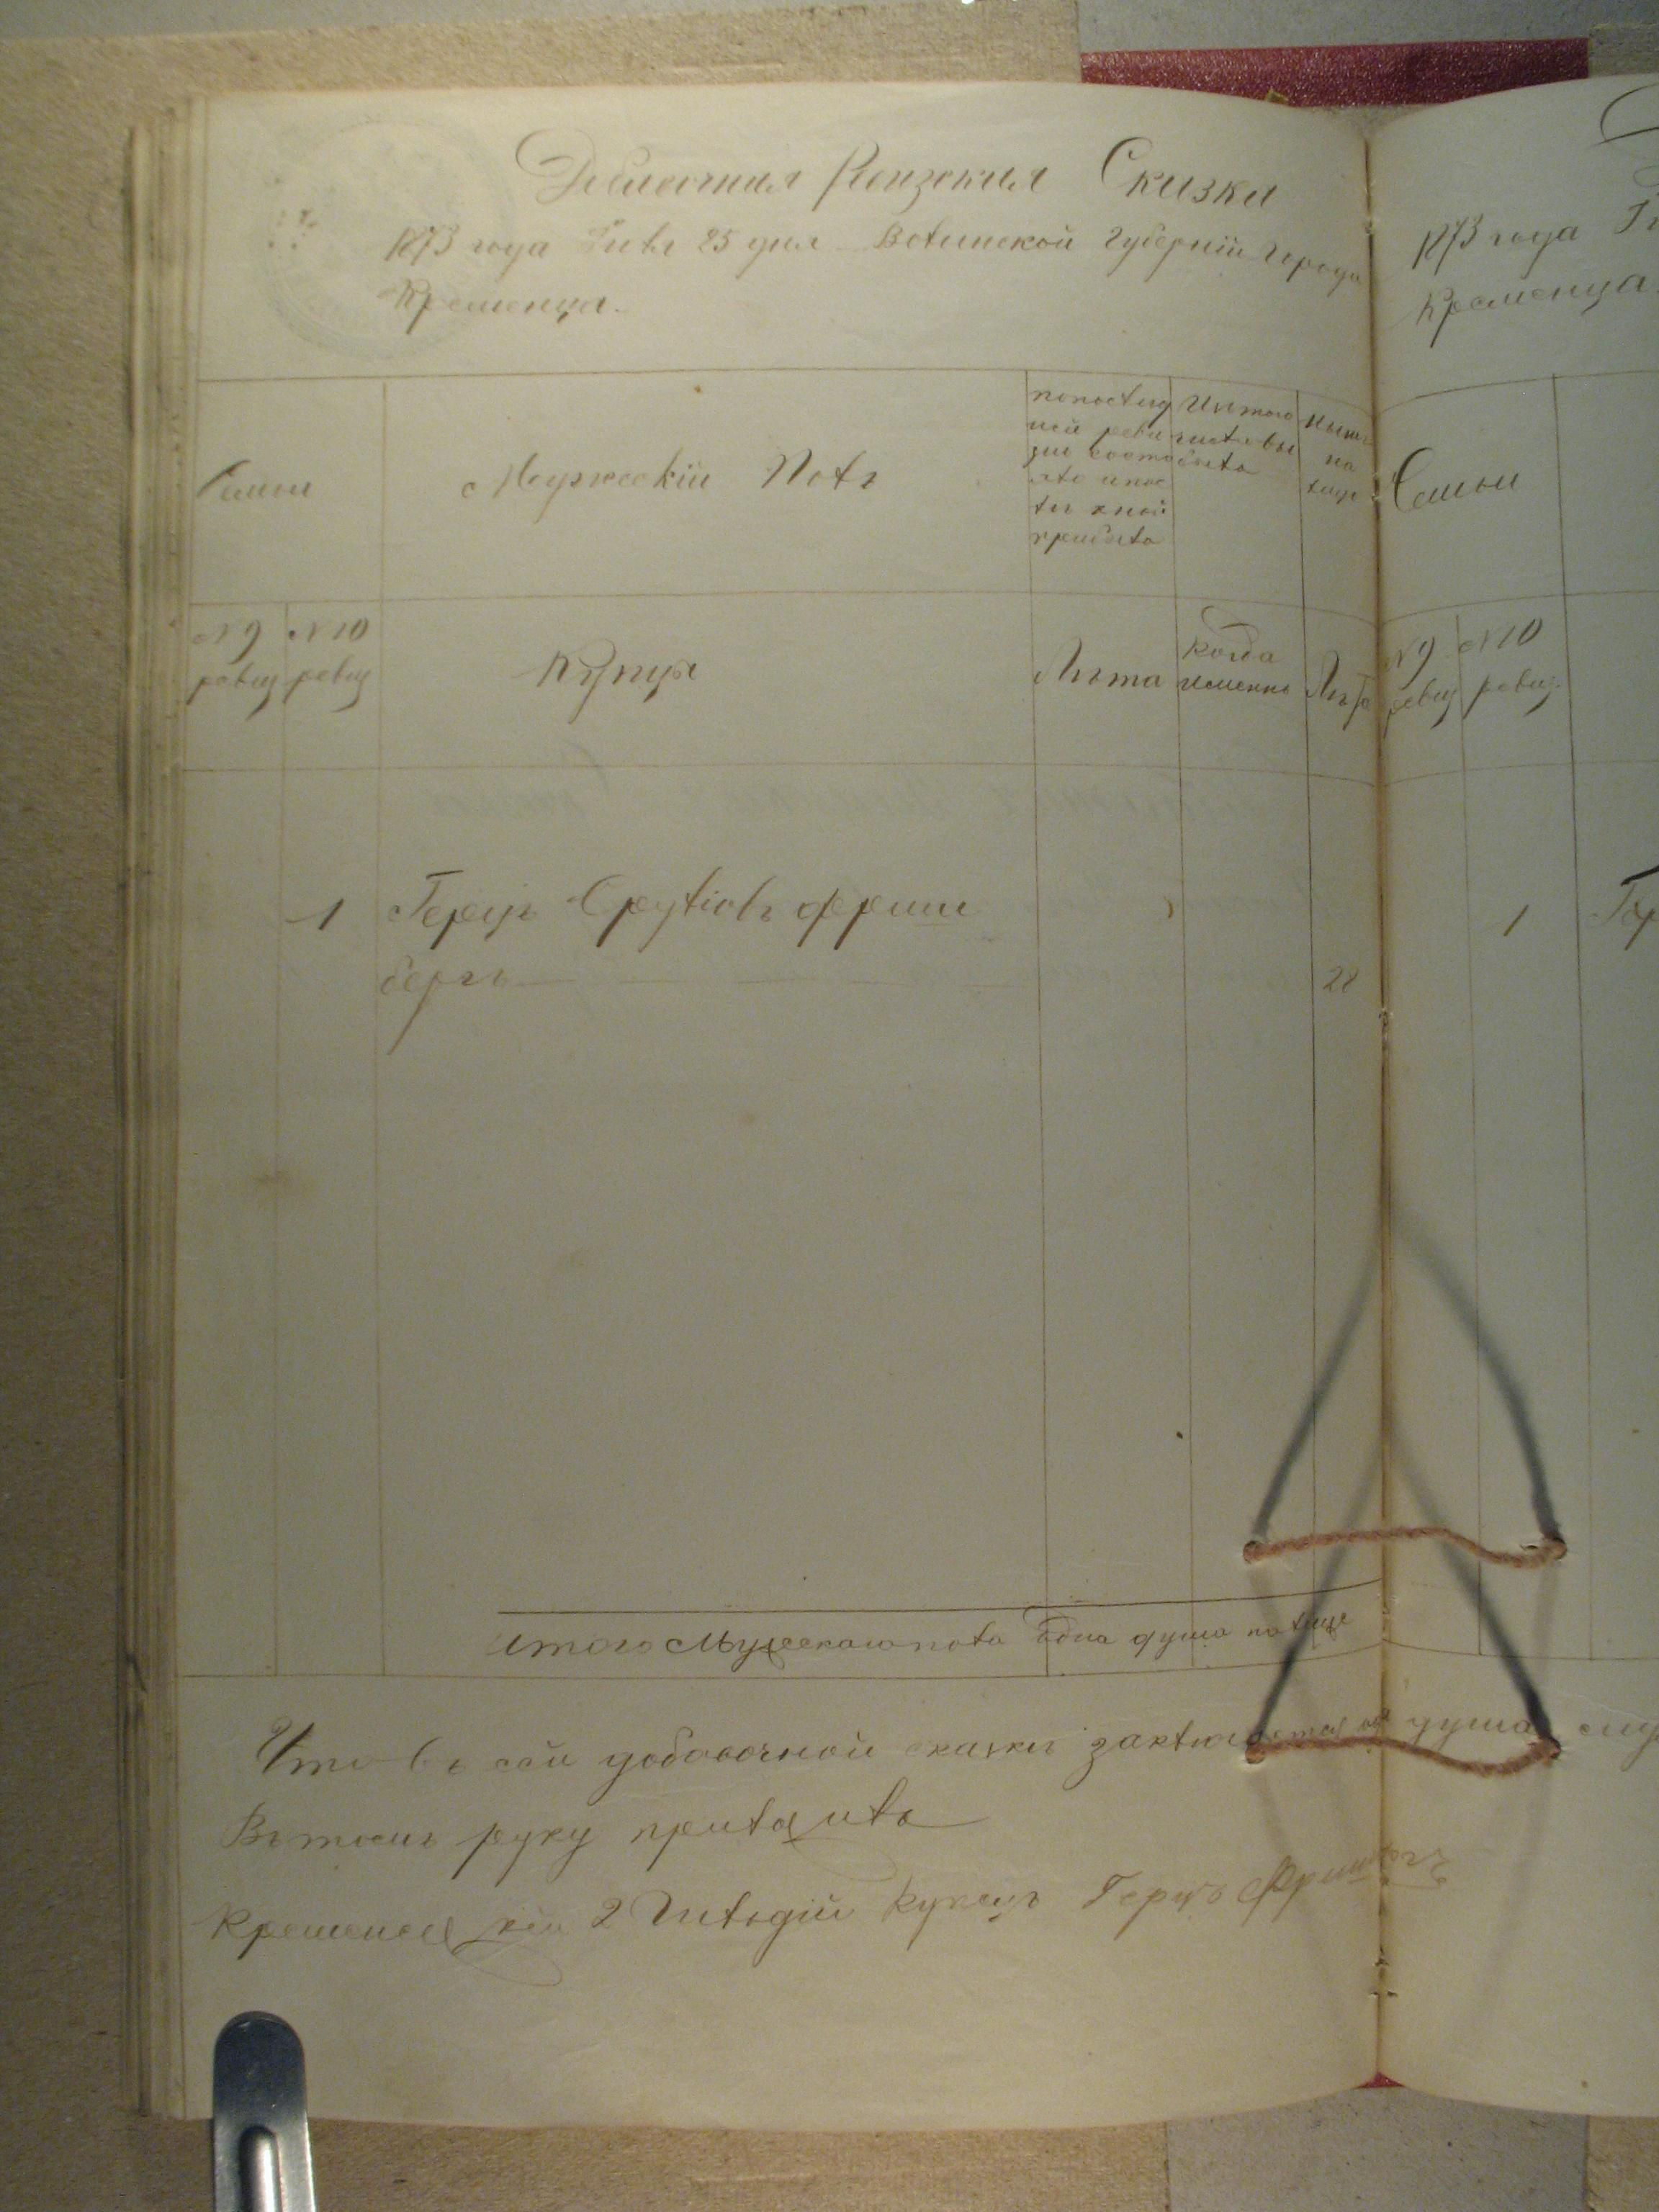 Добавочная Ревизская Сказка
1873 года 25 дня Волынской Губернiи Города
Кременца.
Семьи
Мужескiй Полъ
по послѣд
ней реви
зiи состо
яло и пос
лѣ оной
прибыло
Изъ того
числа вы
было
Нынѣ
на
лицо
№ 9
ревиз
№ 10
ревиз
Купцы
Лѣта
Когда
именно
Лѣта
1 Герцъ Сруліовъ Фриш
бергъ
Итого Мужескаго пола Одна душа на лице
Что въ сей добавочной сказкѣ душа
Въ томъ руку приложилъ
Кременецкiй 2 Гильдiи Купецъ Герцъ
1873 года
Кременца
Семьи
№ 9
ревиз
№ 10
ревиз.
1 Гер